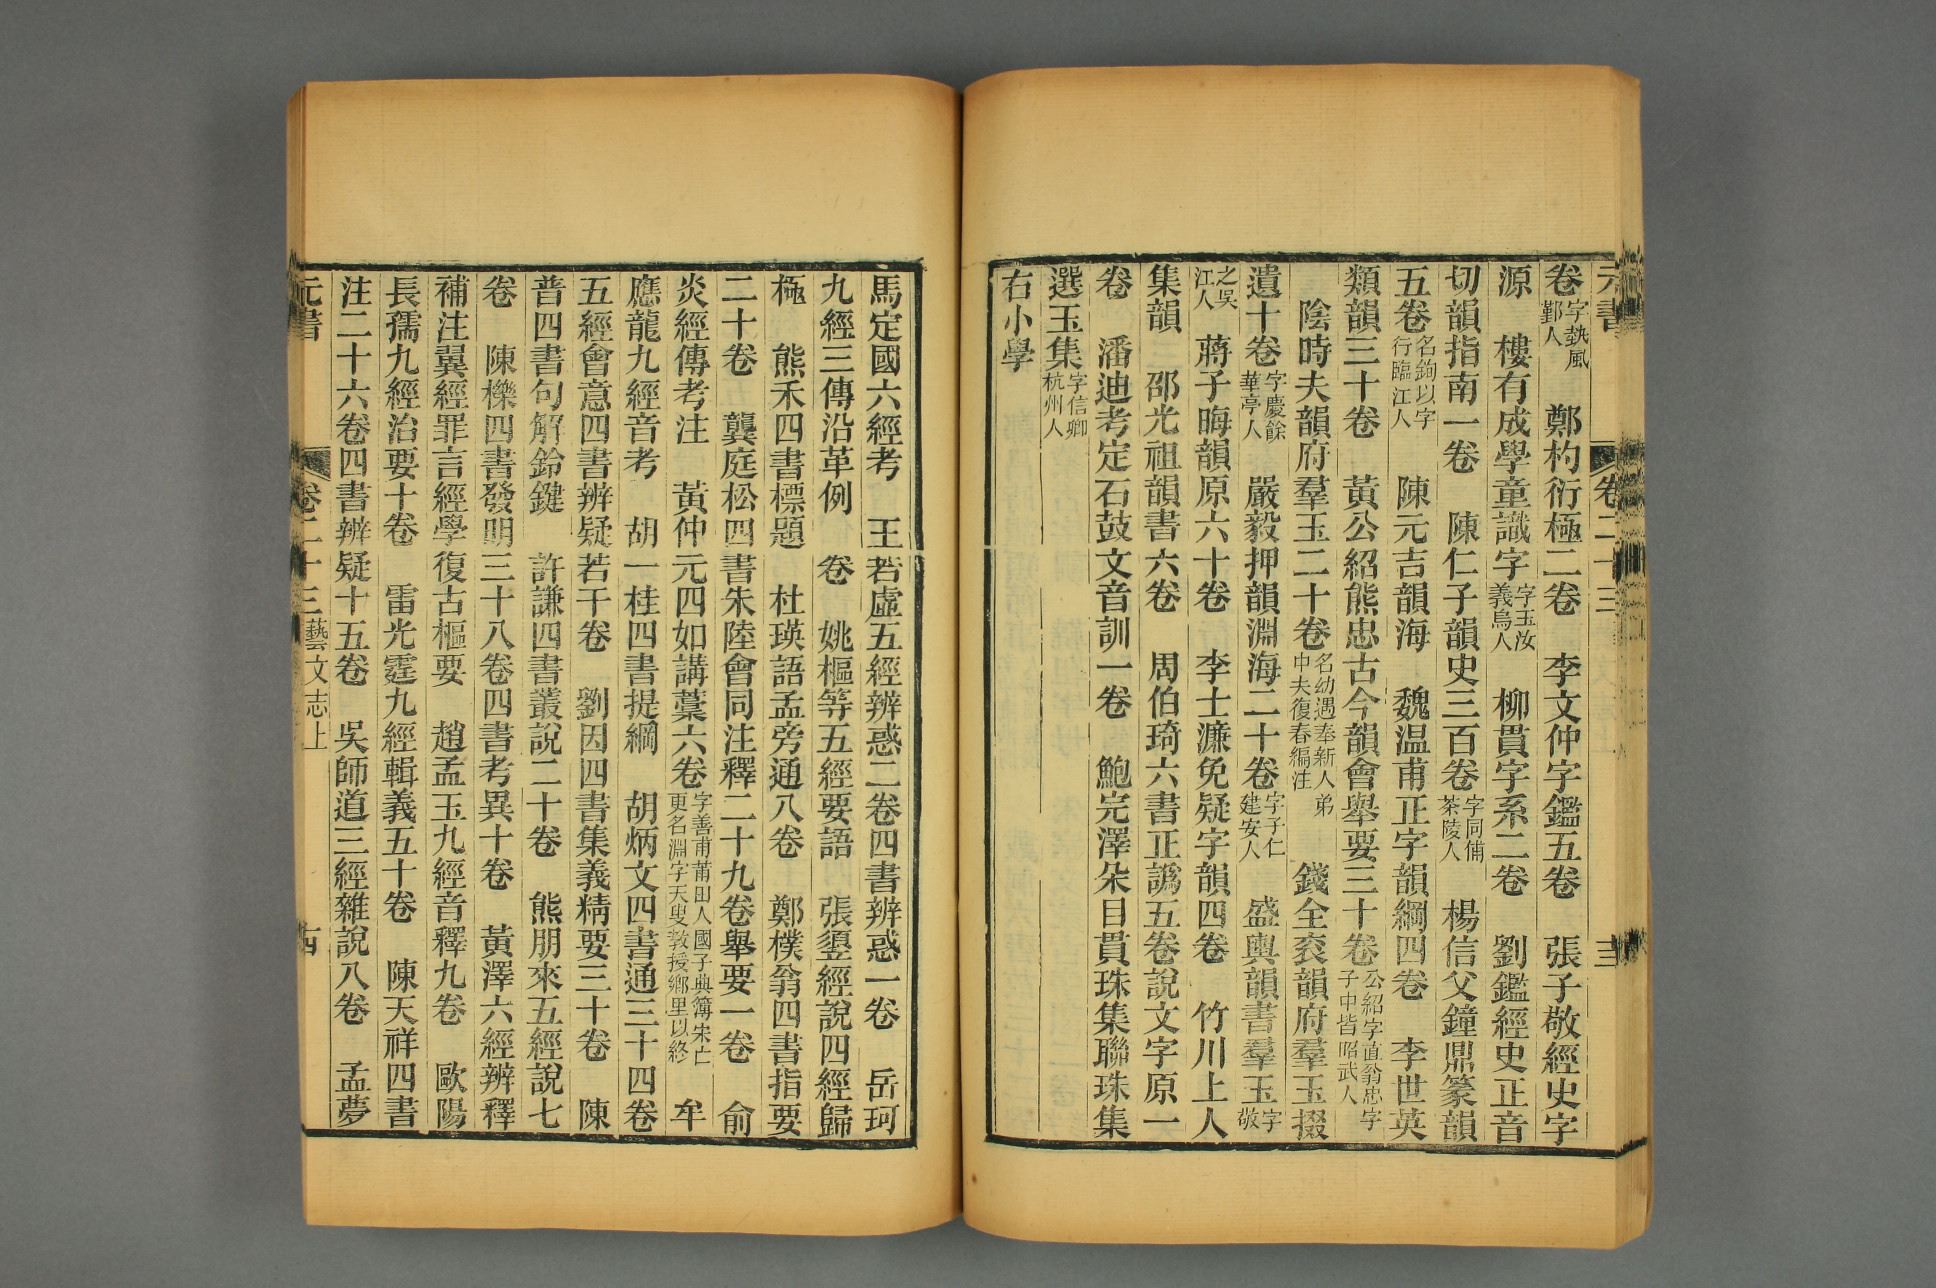 元書 卷二十三 十三
卷字埶風鄞人 鄭杓衍極二卷 李文仲字鑑五卷 張子敬經史字
源 樓有成學童識字字玉汝義烏人 柳貫字系二卷 劉鑑經史正音
切韻指南一卷 陳仁子韻史三百卷字同俌茶陵人 楊信父鐘鼎篆韻
五卷名銁以字行臨江人 陳元吉韻海 魏温甫正字韻綱四卷 李世英
類韻三十卷 黃公紹熊忠古今韻會舉要三十卷公紹字直翁忠字子中皆昭武人
陰時夫韻府羣玉二十卷名幼遇奉新人弟中夫復春編注 錢全衮韻府羣玉掇
遺十卷字慶餘華亭人 嚴毅押韻淵海二十卷字子仁建安人 盛輿韻書羣玉字敬
之吳江人 蔣子晦韻原六十卷 李士濂免疑字韻四卷 竹川上人
集韻 邵光祖韻書六卷 周伯琦六書正譌五卷說文字原一
卷 潘迪考定石鼓文音訓一卷 鮑完澤朵目貫珠集聯珠集
選玉集字信卿杭州人
右小學
馬定國六經考 王若虛五經辨惑二卷四書辨惑一卷 岳珂
九經三傳沿革例 卷 姚樞等五經要語 張𦒿經說四經歸
極 熊禾四書標題 杜瑛語孟旁通八卷 鄭樸翁四書指要
二十卷 龔庭松四書朱陸會同注釋二十九卷舉要一卷 俞
炎經傳考注 黃仲元四如講藁六卷字善甫莆田人國子典簿宋亡更名淵字天叟教授鄉里以終 牟
應龍九經音考 胡一桂四書提綱 胡炳文四書通三十四卷
五經會意四書辨疑若干卷 劉因四書集義精要三十卷 陳
普四書句解鈐鍵 許謙四書叢說二十卷 熊朋來五經說七
卷 陳櫟四書發明三十八卷四書考異十卷 黃澤六經辨釋
補注翼經罪言經學復古樞要 趙孟玉九經音釋九卷 歐陽
長孺九經治要十卷 雷光霆九經輯義五十卷 陳天祥四書
注二十六卷四書辨疑十五卷 吳師道三經雜說八卷 孟夢
元書 卷二十三 藝文志上 十四